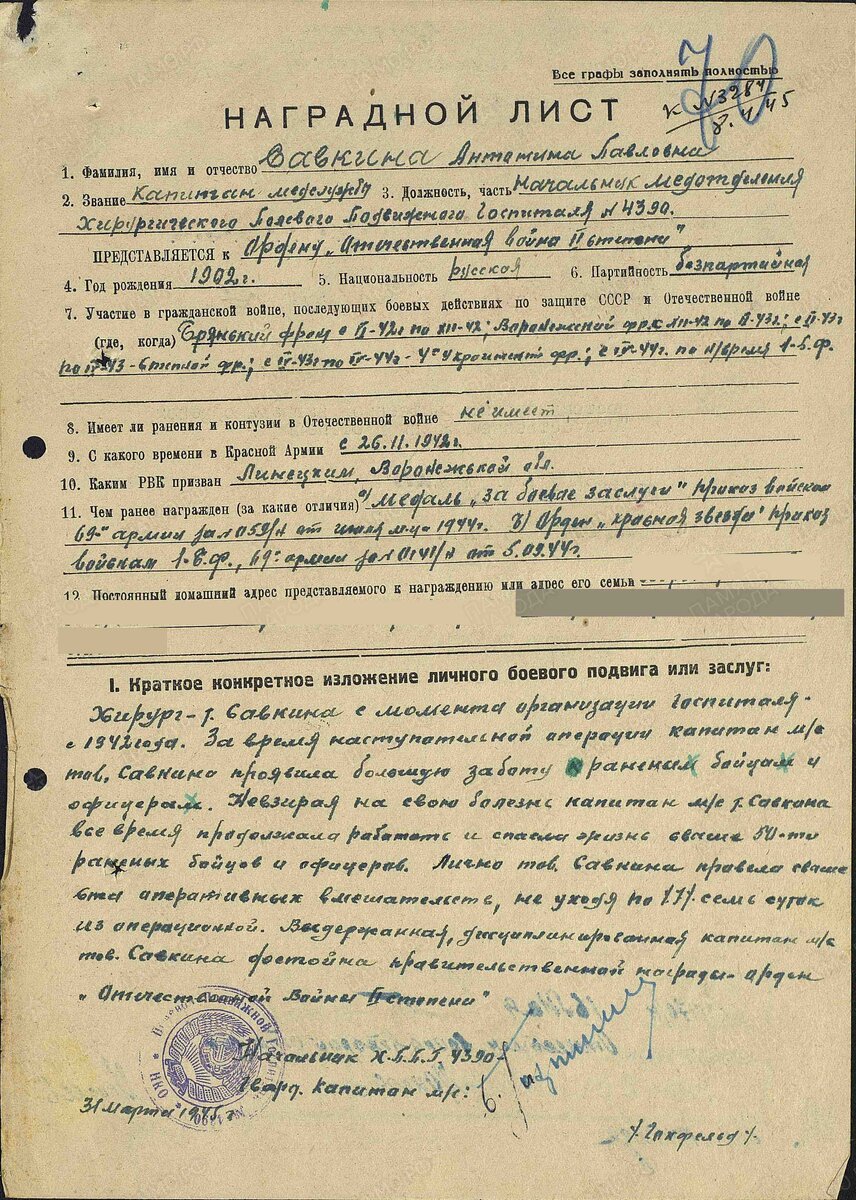 Все графы заполнять полностью
70
к №3284
8.4.45
НАГРАДНОЙ ЛИСТ
1. Фамилия, имя и отчество Савкина Антонина Павловна
2. Звание Капитан медслужбы 3. Должность, часть Начальник медотделения
Хирургического Полевого Подвижного Госпиталя №4390.
ПРЕДСТАВЛЯЕТСЯ к Ордену „Отечественная война II степени"
4. Год рождения 1902 г. 5. Национальность русская 6. Партийность безпартийная
7. Участие в гражданской войне, последующих боевых действиях по защите СССР и Отечественной войне
(где, когда) Брянский фронт с II-42г по XII-42; Воронежский фр. с XII-42 по 43г; с 43г
по 43 - Степной фр.; с 43г по IV-44г - Украинский фр.; с IV-44г. по н/время 1-Б.ф.
8. Имеет ли ранения и контузии в Отечественной войне не имеет
9. С какого времени в Красной Армии с 26.11.1942г.
10. Каким РВК призван Воронежской обл.
11. Чем ранее награжден (за какие отличия) а) медаль „за боевые заслуги" приказ войскам
69-й армии за № 059/н от 1944г. б) Орден „Красная звезда" приказ
войскам 1-Б.Ф., 69-й армии за № 0141/н от 5.09.44г.
12. Постоянный домашний адрес представляемого к награждению или адрес его семьи
I. Краткое конкретное изложение личного боевого подвига или заслуг:
Хирург - т. Савкина с момента организации госпиталя -
с 1942 года. За время наступательной операции капитан м/с
тов. Савкина проявила большую заботу к раненым бойцам и
офицерам. Невзирая на свою болезнь капитан м/с т. Савкина
все время продолжала работать и спасла жизнь свыше 50-ти
раненых бойцов и офицеров. Лично тов. Савкина провела свыше
ста оперативных вмешательств, не уходя по /7/ семь суток
из операционной. Выдержанная, дисциплинированная капитан м/с
тов. Савкина достойна правительственной награды - орден
„Отечественной Войны II степени"
Начальник Х.П.П.Г. 4390 -
Гвард. капитан м/с:
31 марта 1945 г.
НКО
№ 4390